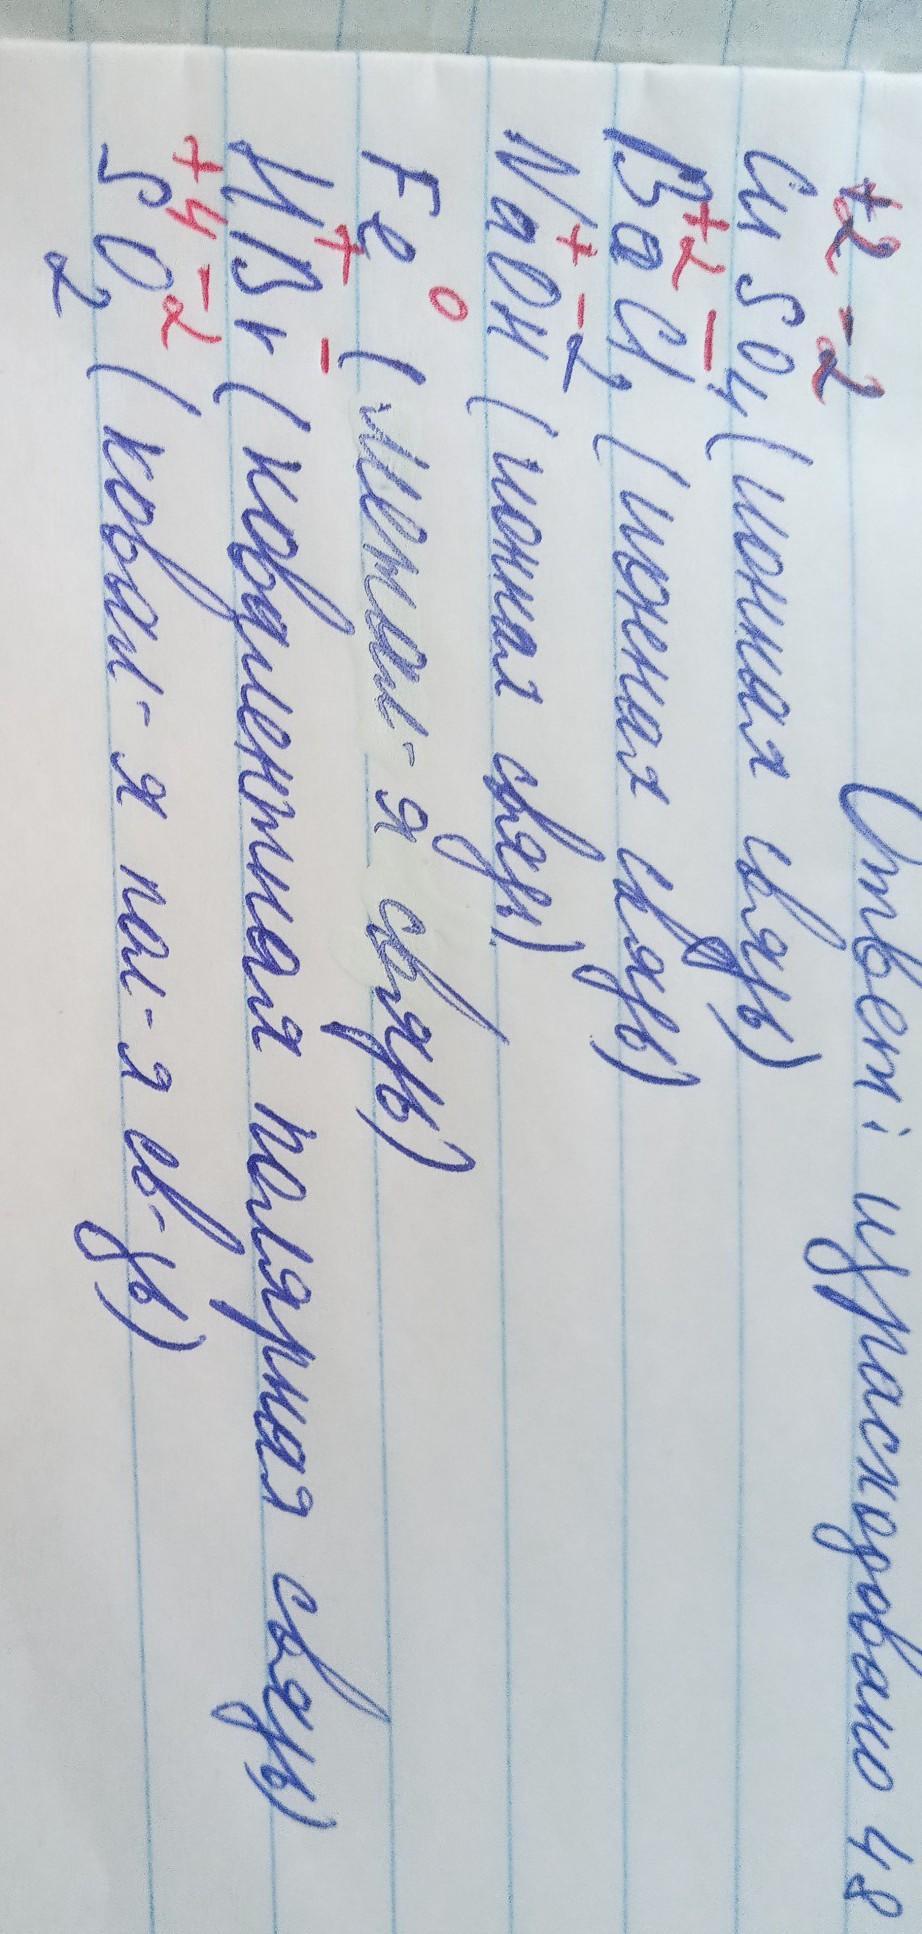 Ответ: израсходовано 48
+2 -2
CuSO4 (ионная связь)
+2 -
BaCl2 (ионная связь)
+ -2
NaOH (ионная связь)
0
Fe (метал-я связь)
+ -
HBr (ковалентная полярная связь)
+4 -2
SO2 (ковал-я пол-я св-зь)